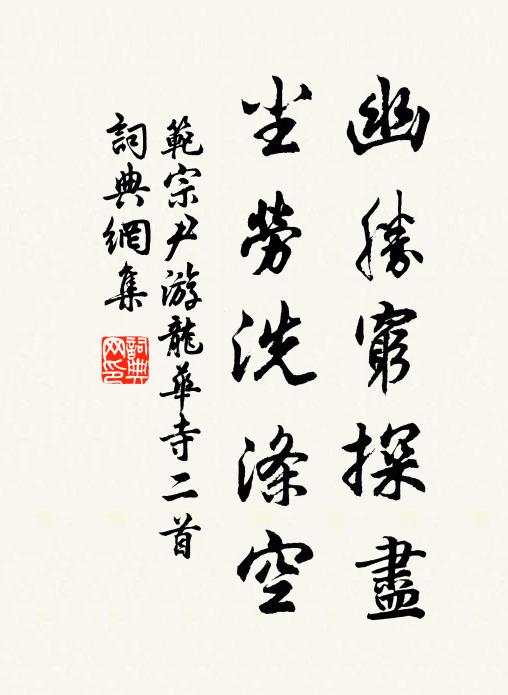 幽勝窮探盡
尘勞洗滌空
範宗尹游龍華寺二首
詞典網集
詞典網印